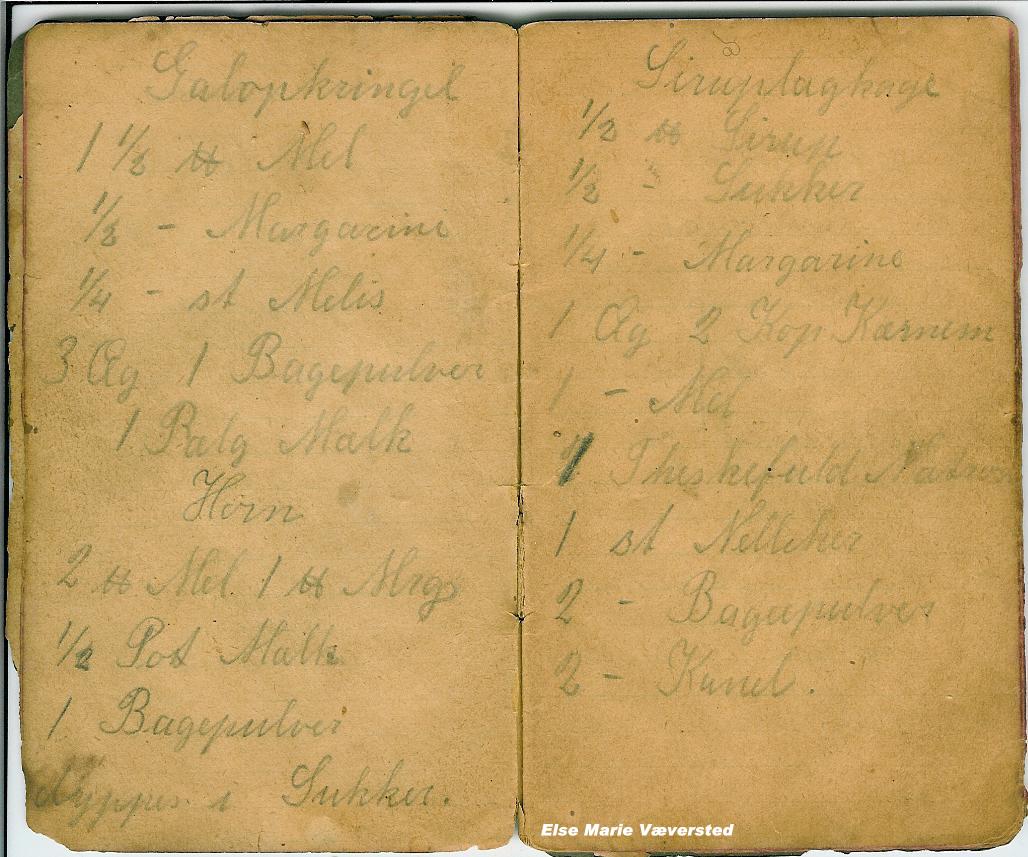 Galopkringel
1 1/2 ℔ Mel
1/2 - Margarine
1/4 - st Melis
3 Æg 1 Bagepulver
1 Pælg Mælk
Horn
2 ℔ Mel 1 ℔ Mrg
1/2 Pot Mælk
1 Bagepulver
dyppes i Sukker.
Siruplaghage
1/2 ℔ Sirup
1/2 - Sukker
1/4 - Margarine
1 Æg 2 Kop Kærnem
1 - Mel
1 Theskefuld Natron
1 st Nelleker
2 - Bagepulver
2 - Kanel.
Else Marie Væversted